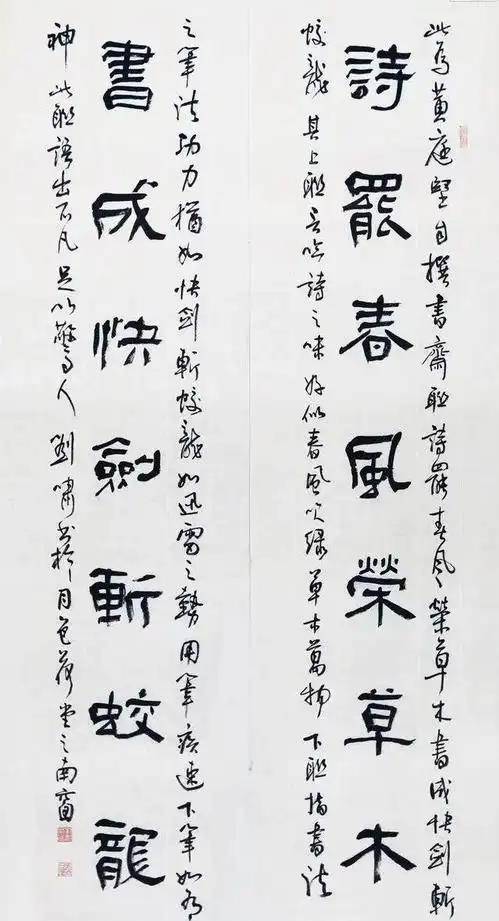 此為黃庭堅自撰書齋聯詩罷春風榮草木書成快劍斬
詩罷春風榮草木
蛟龍其上聯言吟詩之味好似春風吹綠草木萬物下聯指書法
之筆法功力猶如快劍斬蛟龍如迅雷之勢用筆疾速下筆如有
書成快劍斬蛟龍
神此聯語出不凡足以驚人劉嘯書於月色荷堂之南窗